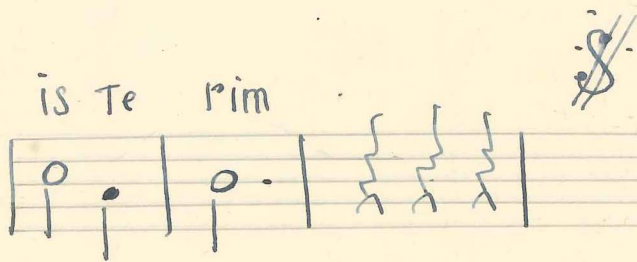 is Te rim